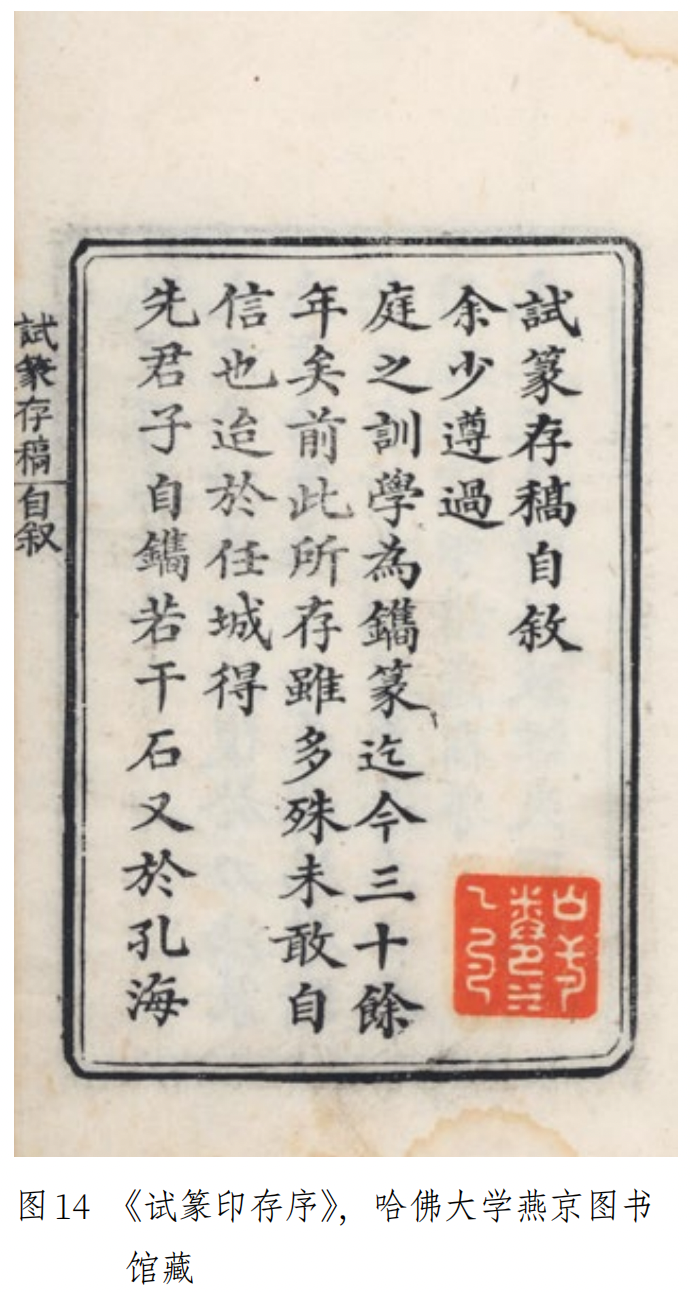 試篆存稿自敘
余少遵過
庭之訓學為鐫篆迄今三十餘
年矣前此所存雖多殊未敢自
信也迨於任城得
先君子自鐫若干石又於孔海
試篆存稿
自叙
图14 《试篆印存序》，哈佛大学燕京图书
馆藏